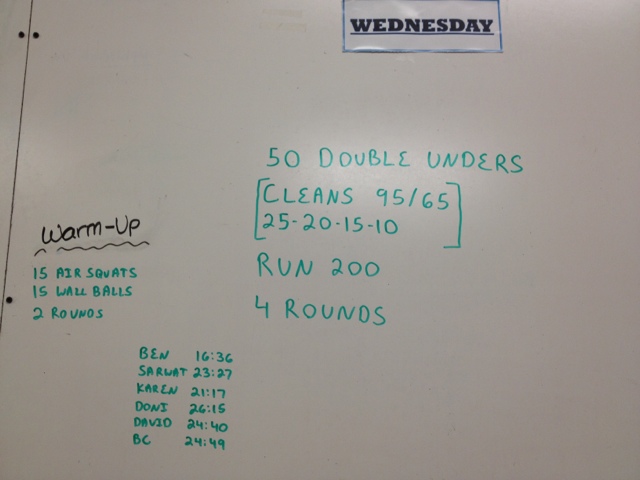 WEDNESDAY
50 DOUBLE UNDERS
CLEANS 95/65
25-20-15-10
RUN 200
4 ROUNDS
Warm-Up
15 AIR SQUATS
15 WALL BALLS
2 ROUNDS
BEN 16:36
SARWAT 23:27
KAREN 21:17
DONI 26:15
DAVID 24:40
BC 24:49